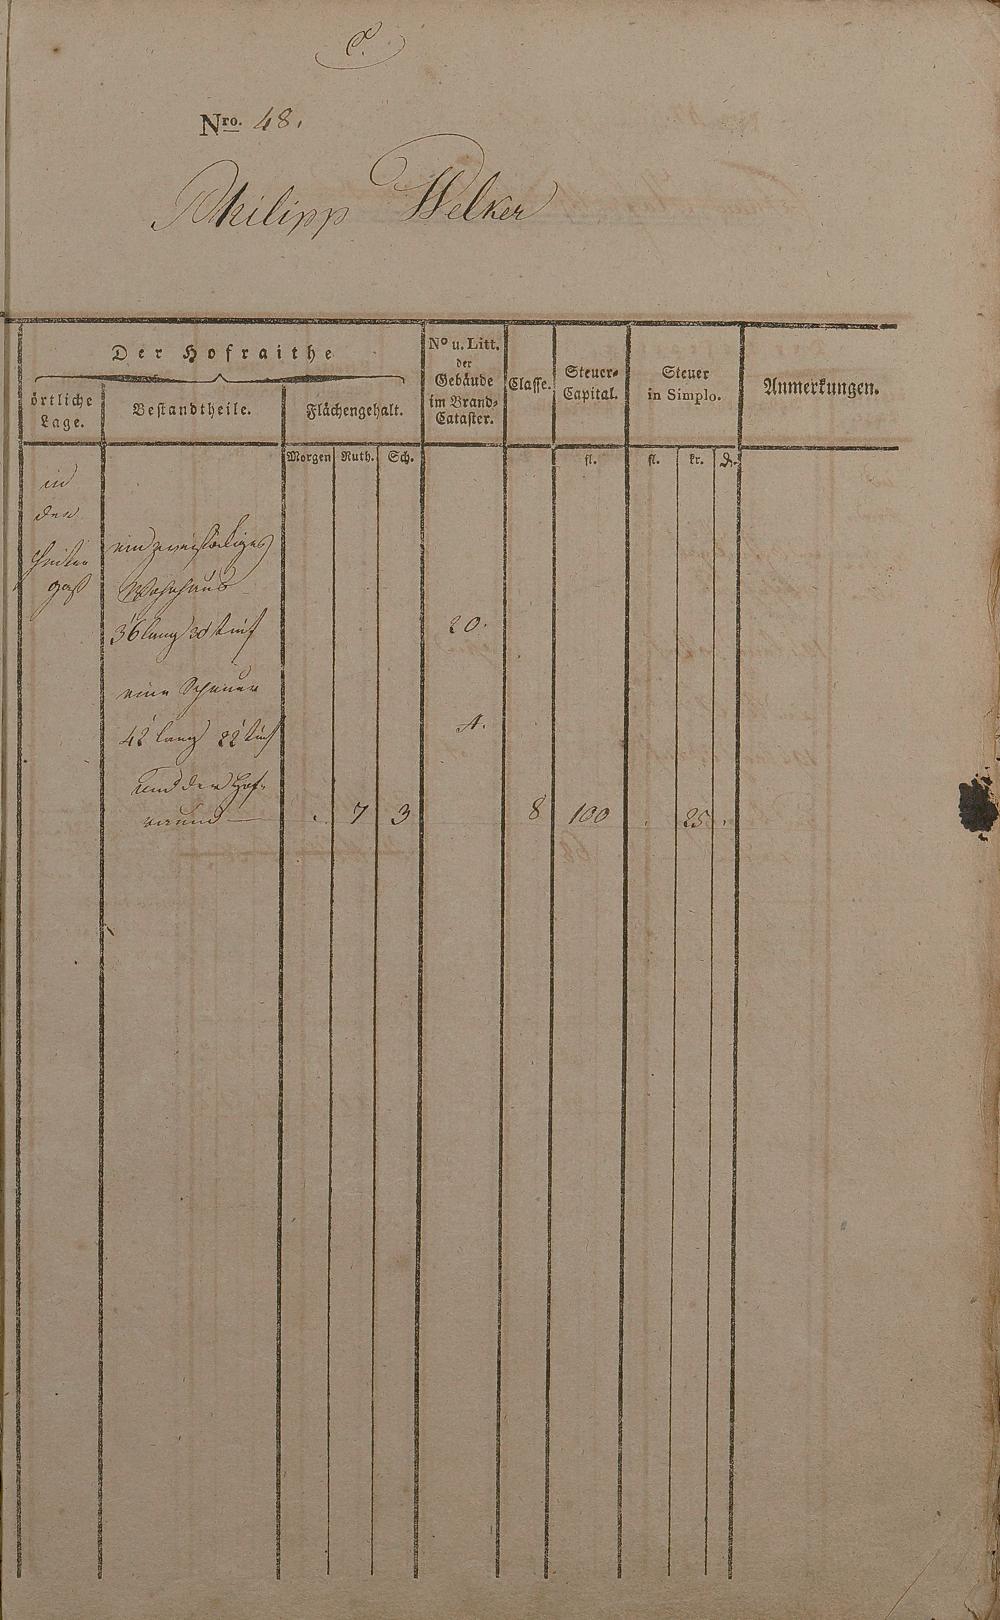 Nro. 48.
Philipp Welker
Der Hofraithe
örtliche Lage.
Bestandtheile.
Flächengehalt.
No u. Litt. der Gebäude im Brand-Cataster.
Classe.
Steuer-Capital.
Steuer in Simplo.
Anmerkungen.
Morgen Ruth. Sch. fl. fl. kr. d.
in
der
Hinter
gaß
ein zweistöckiges
Wohnhaus
36' lang 30' tief 20.
eine Scheuer
42' lang 22' tief A.
und der Hof-
raum — . 7 3 8 100 . 25 .